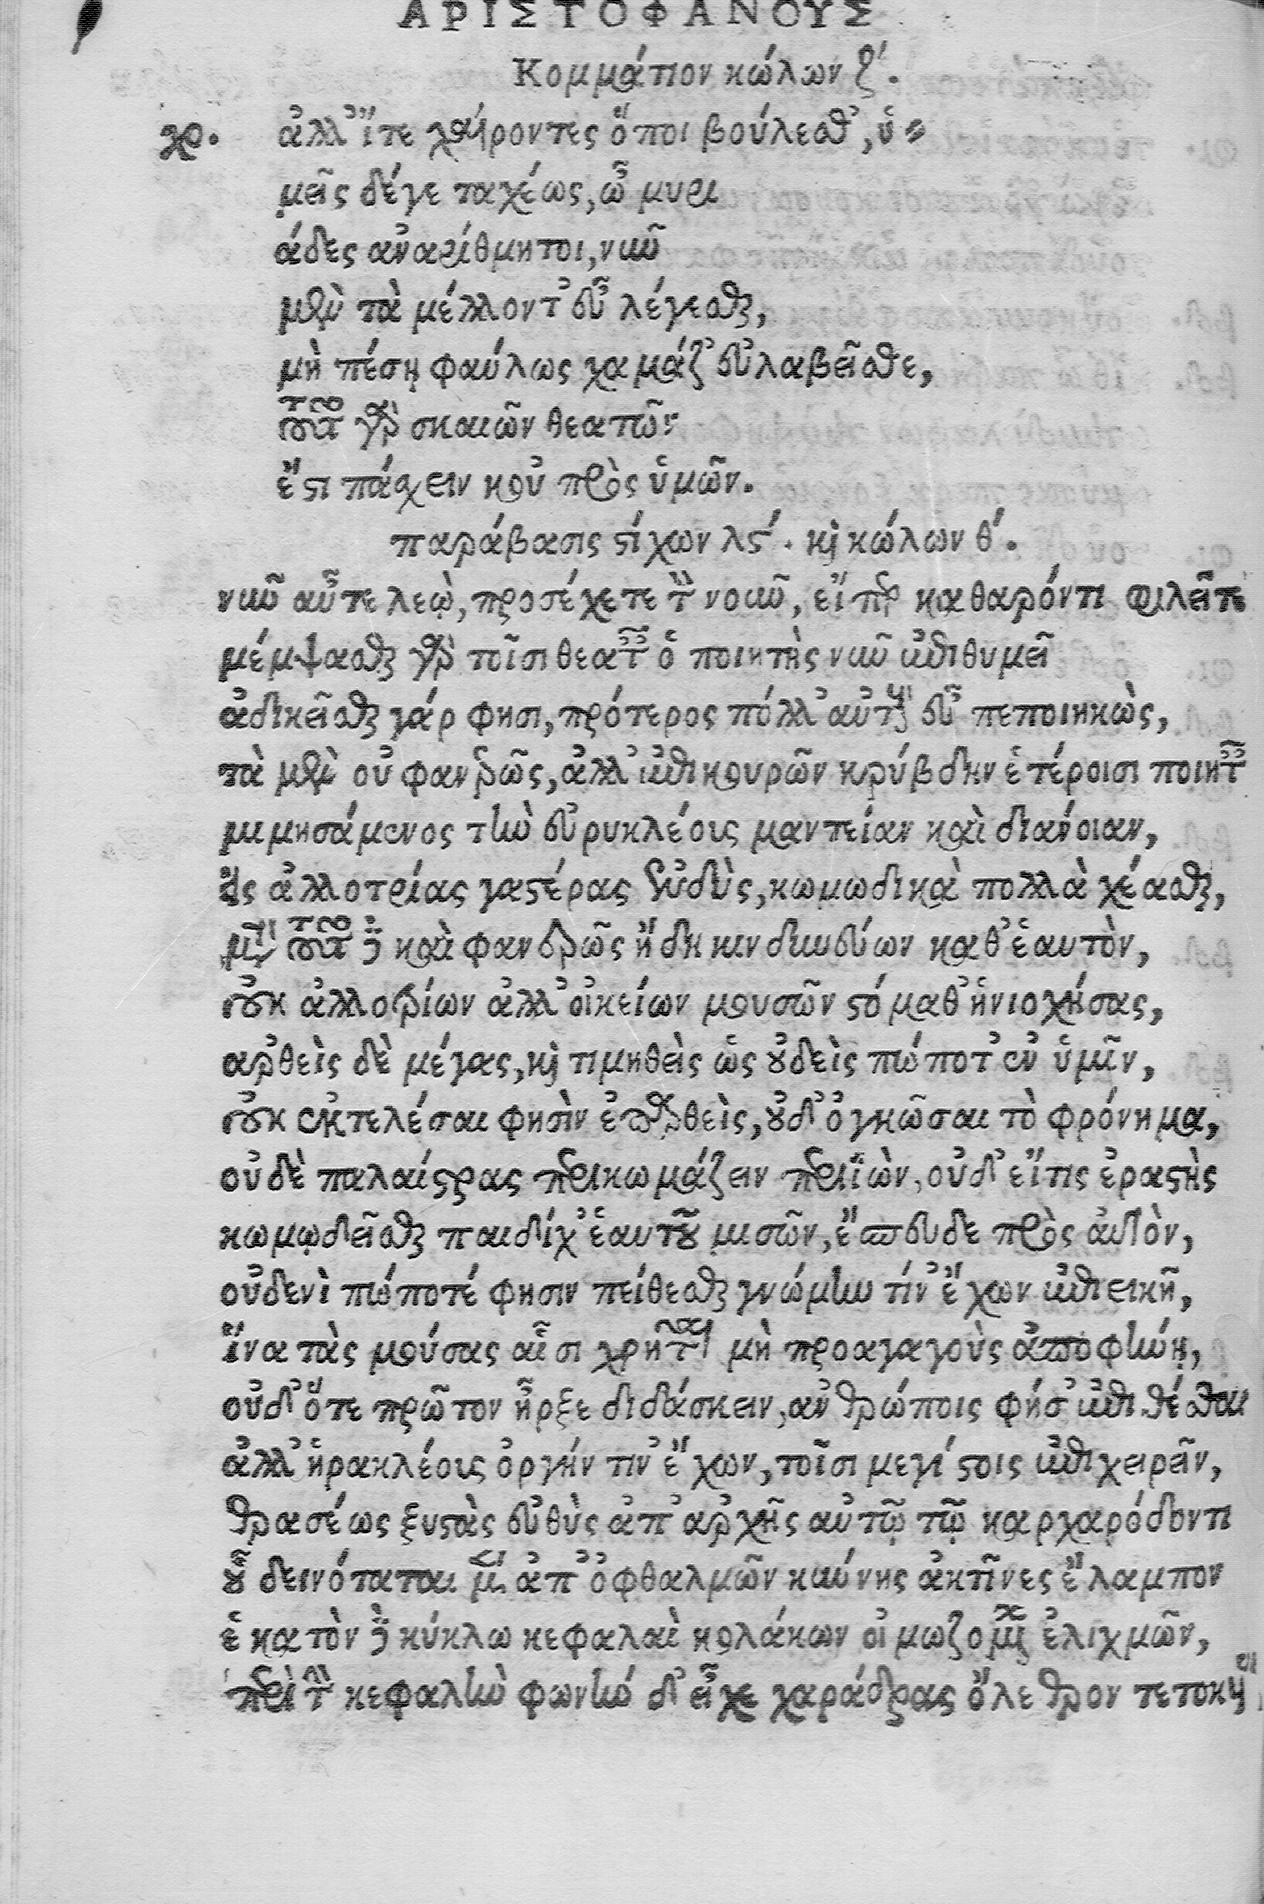 ΑΡΙΣΤΟΦΑΝΟΥΣ
Κομμάτιον κώλων ζ΄.
χο. ἀλλ' ἴτε χαίροντες ὅποι βούλεσθ', ὑ-
μεῖς δέ γε ταχέως, ὦ μυρι
άδες ἀναρίθμητοι, νῦν
μὲν τὰ μέλλοντ' εὖ λέγεσθαι,
μὴ πέσῃ φαύλως χαμάζ' εὐλαβεῖσθε,
τοῦτο γὰρ σκαιῶν θεατῶν
ἔστι πάσχειν κοὐ πρὸς ὑμῶν.
παράβασις στίχων λς΄. καὶ κώλων θ΄.
νῦν αὖτε λεῲ, προσέχετε τὸν νοῦν, εἴπερ καθαρόν τι φιλεῖτε
μέμψασθαι γὰρ τοῖσι θεαταῖς ὁ ποιητὴς νῦν ἐπιθυμεῖ
ἀδικεῖσθαι γάρ φησι, πρότερος πόλλ' αὐτοὺς εὖ πεποιηκὼς,
τὰ μὲν οὐ φανερῶς, ἀλλ' ἐπικουρῶν κρύβδην ἑτέροισι ποιηταῖς
μιμησάμενος τὴν εὐρυκλέους μαντείαν καὶ διάνοιαν,
εἰς ἀλλοτρίας γαστέρας ἐνδὺς, κωμωδικὰ πολλὰ χέασθαι,
μετὰ τοῦτο δὲ καὶ φανερῶς ἤδη κινδυνεύων καθ' ἑαυτὸν,
οὐκ ἀλλοτρίων ἀλλ' οἰκείων μουσῶν στόμαθ' ἡνιοχήσας,
ἀρθεὶς δὲ μέγας, καὶ τιμηθεὶς ὡς οὐδεὶς πώποτ' ἐν ὑμῖν,
οὐκ ἐκτελέσαι φησὶν ἐπαρθεὶς, οὐδ' ὀγκῶσαι τὸ φρόνημα,
οὐδὲ παλαίστρας περικωμάζειν περιϊὼν, οὐδ' εἴ τις ἐραστὴς
κωμῳδεῖσθαι παιδίχ' ἑαυτοῦ μισῶν, ἔσπευδε πρὸς αὐτὸν,
οὐδενὶ πώποτέ φησιν πείθεσθαι γνώμην τίν' ἔχων ἐπιεικῆ,
ἵνα τὰς μούσας αἷσι χρῆται μὴ προαγωγοὺς ἀποφήνῃ,
οὐδ' ὅτε πρῶτον ἦρξε διδάσκειν, ἀνθρώποις φήσ' ἐπιθέσθαι
ἀλλ' ἡρακλέους ὀργήν τιν' ἔχων, τοῖσι μεγίστοις ἐπιχειρεῖν,
θρασέως ξυστὰς εὐθὺς ἀπ' ἀρχῆς αὐτῷ τῷ καρχαρόδοντι
οὗ δεινόταται μὲν ἀπ' ὀφθαλμῶν κύνης ἀκτῖνες ἔλαμπον
ἑκατὸν δὲ κύκλω κεφαλαὶ κολάκων οἰμωζομένων ἐλιχμῶν,
περὶ τὴν κεφαλὴν φωνὴν δ' εἶχε χαράδρας ὄλεθρον τετοκυίας